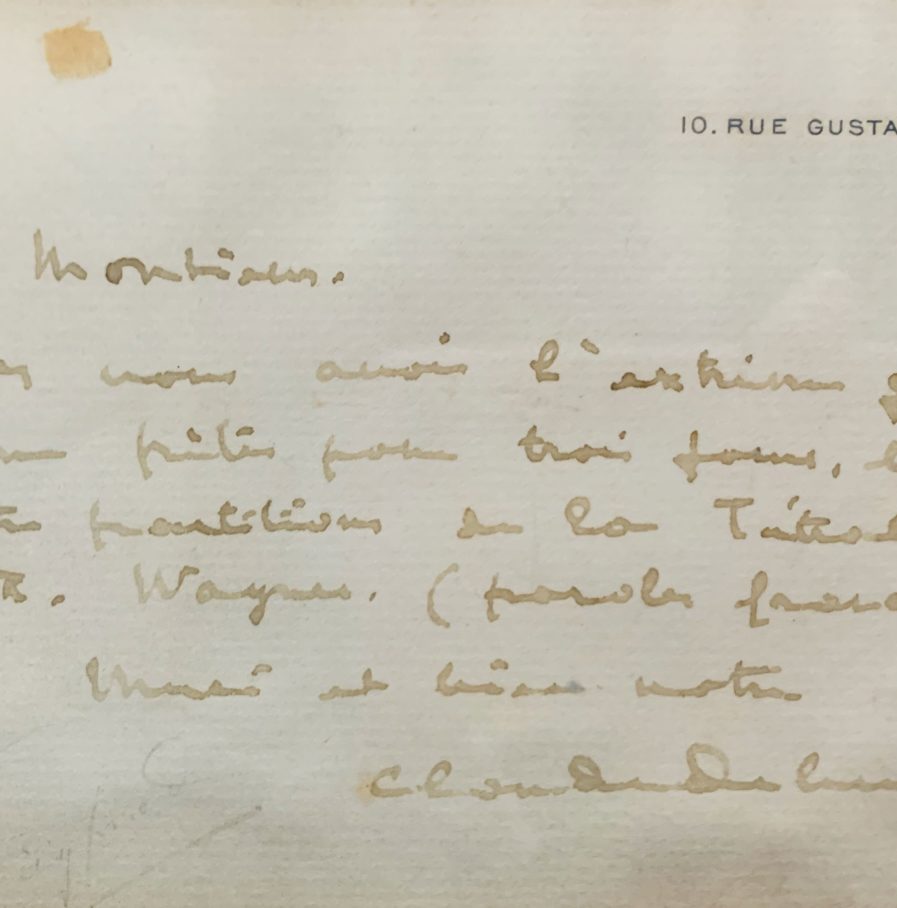 10. RUE GUSTA
Monsieur.
vous avoir l'extrême
prêter pour trois jours,
partitions de la Tétral
R. Wagner. (paroles franç
Merci et bien votre
Claude Debu